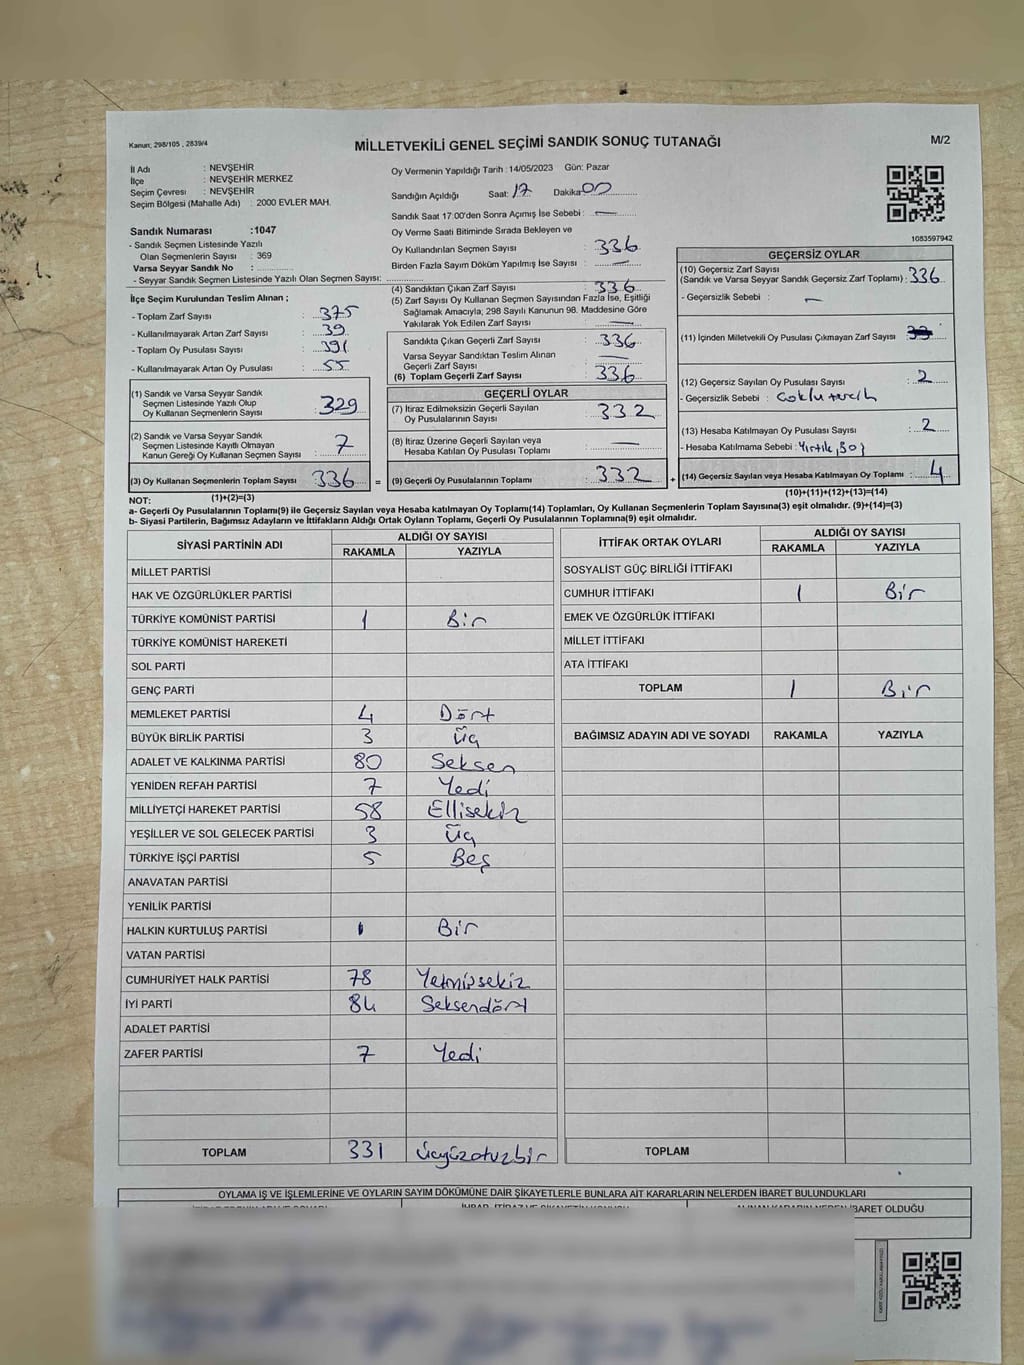 Kanun; 298/105 , 2839/4
MİLLETVEKİLİ GENEL SEÇİMİ SANDIK SONUÇ TUTANAĞI
M/2
İl Adı : NEVŞEHİR
İlçe : NEVŞEHİR MERKEZ
Seçim Çevresi : NEVŞEHİR
Seçim Bölgesi (Mahalle Adı) : 2000 EVLER MAH.
Oy Vermenin Yapıldığı Tarih : 14/05/2023 Gün: Pazar
Sandığın Açıldığı Saat: 17 Dakika: 00
Sandık Saat 17.00'den Sonra Açımış İse Sebebi : —
Sandık Numarası :1047
- Sandık Seçmen Listesinde Yazılı
Olan Seçmenlerin Sayısı : 369
Varsa Seyyar Sandık No :
- Seyyar Sandık Seçmen Listesinde Yazılı Olan Seçmen Sayısı:
Oy Verme Saati Bitiminde Sırada Bekleyen ve
Oy Kullandırılan Seçmen Sayısı : 336
Birden Fazla Sayım Döküm Yapılmış İse Sayısı : —
1083597942
İlçe Seçim Kurulundan Teslim Alınan ;
- Toplam Zarf Sayısı : 375
- Kullanılmayarak Artan Zarf Sayısı : 39
- Toplam Oy Pusulası Sayısı : 391
- Kullanılmayarak Artan Oy Pusulası : 55
(1) Sandık ve Varsa Seyyar Sandık
Seçmen Listesinde Yazılı Olup
Oy Kullanan Seçmenlerin Sayısı : 329
(2) Sandık ve Varsa Seyyar Sandık
Seçmen Listesinde Kayıtlı Olmayan
Kanun Gereği Oy Kullanan Seçmen Sayısı : 7
(3) Oy Kullanan Seçmenlerin Toplam Sayısı : 336 =
(4) Sandıktan Çıkan Zarf Sayısı : 336
(5) Zarf Sayısı Oy Kullanan Seçmen Sayısından Fazla İse, Eşitliği
Sağlamak Amacıyla; 298 Sayılı Kanunun 98. Maddesine Göre
Yakılarak Yok Edilen Zarf Sayısı : —
Sandıkta Çıkan Geçerli Zarf Sayısı : 336
Varsa Seyyar Sandıktan Teslim Alınan
Geçerli Zarf Sayısı : —
(6) Toplam Geçerli Zarf Sayısı : 336
GEÇERLİ OYLAR
(7) İtiraz Edilmeksizin Geçerli Sayılan
Oy Pusulalarının Sayısı : 332
(8) İtiraz Üzerine Geçerli Sayılan veya
Hesaba Katılan Oy Pusulası Toplamı : —
(9) Geçerli Oy Pusulalarının Toplamı : 332 +
GEÇERSİZ OYLAR
(10) Geçersiz Zarf Sayısı
(Sandık ve Varsa Seyyar Sandık Geçersiz Zarf Toplamı) : 336
- Geçersizlik Sebebi : —
(11) İçinden Milletvekili Oy Pusulası Çıkmayan Zarf Sayısı :
(12) Geçersiz Sayılan Oy Pusulası Sayısı : 2
- Geçersizlik Sebebi : Çoklu tercih
(13) Hesaba Katılmayan Oy Pusulası Sayısı : 2
- Hesaba Katılmama Sebebi : Yırtık,
(14) Geçersiz Sayılan veya Hesaba Katılmayan Oy Toplamı : 4
NOT: (1)+(2)=(3)
(10)+(11)+(12)+(13)=(14)
a- Geçerli Oy Pusulalarının Toplamı(9) ile Geçersiz Sayılan veya Hesaba katılmayan Oy Toplamı(14) Toplamları, Oy Kullanan Seçmenlerin Toplam Sayısına(3) eşit olmalıdır. (9)+(14)=(3)
b- Siyasi Partilerin, Bağımsız Adayların ve İttifakların Aldığı Oy Ortak Oyların Toplamı, Geçerli Oy Pusulalarının Toplamına(9) eşit olmalıdır.
SİYASİ PARTİNİN ADI ALDIĞI OY SAYISI
RAKAMLA YAZIYLA
MİLLET PARTİSİ
HAK VE ÖZGÜRLÜKLER PARTİSİ
TÜRKİYE KOMÜNİST PARTİSİ 1 Bir
TÜRKİYE KOMÜNİST HAREKETİ
SOL PARTİ
GENÇ PARTİ
MEMLEKET PARTİSİ 4 Dört
BÜYÜK BİRLİK PARTİSİ 3 Üç
ADALET VE KALKINMA PARTİSİ 80 Seksen
YENİDEN REFAH PARTİSİ 7 Yedi
MİLLİYETÇİ HAREKET PARTİSİ 58 Ellisekiz
YEŞİLLER VE SOL GELECEK PARTİSİ 3 Üç
TÜRKİYE İŞÇİ PARTİSİ 5 Beş
ANAVATAN PARTİSİ
YENİLİK PARTİSİ
HALKIN KURTULUŞ PARTİSİ 1 Bir
VATAN PARTİSİ
CUMHURİYET HALK PARTİSİ 78 Yetmişsekiz
İYİ PARTİ 84 Seksendört
ADALET PARTİSİ
ZAFER PARTİSİ 7 Yedi
TOPLAM 331 Üçyüzotuzbir
İTTİFAK ORTAK OYLARI ALDIĞI OY SAYISI
RAKAMLA YAZIYLA
SOSYALİST GÜÇ BİRLİĞİ İTTİFAKI
CUMHUR İTTİFAKI 1 Bir
EMEK VE ÖZGÜRLÜK İTTİFAKI
MİLLET İTTİFAKI
ATA İTTİFAKI
TOPLAM 1 Bir
BAĞIMSIZ ADAYIN ADI VE SOYADI RAKAMLA YAZIYLA
TOPLAM
OYLAMA İŞ VE İŞLEMLERİNE VE OYLARIN SAYIM DÖKÜMÜNE DAİR ŞİKAYETLERLE BUNLARA AİT KARARLARIN NELERDEN İBARET BULUNDUKLARI
İBARET OLDUĞU